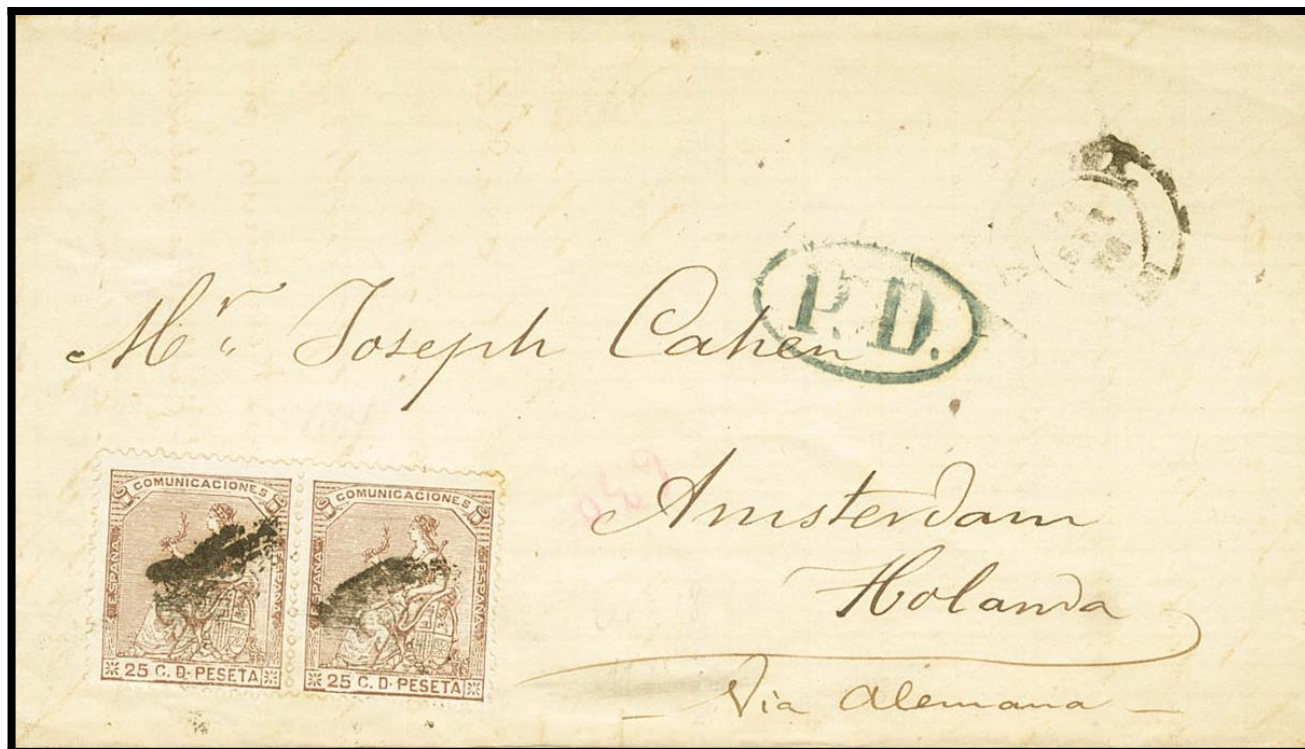 P.D.
Mr. Joseph Cahen
Amsterdam
Holanda
Via Alemana
COMUNICACIONES
ESPAÑA ESPAÑA
25 C. D. PESETA
COMUNICACIONES
ESPAÑA ESPAÑA
25 C. D. PESETA